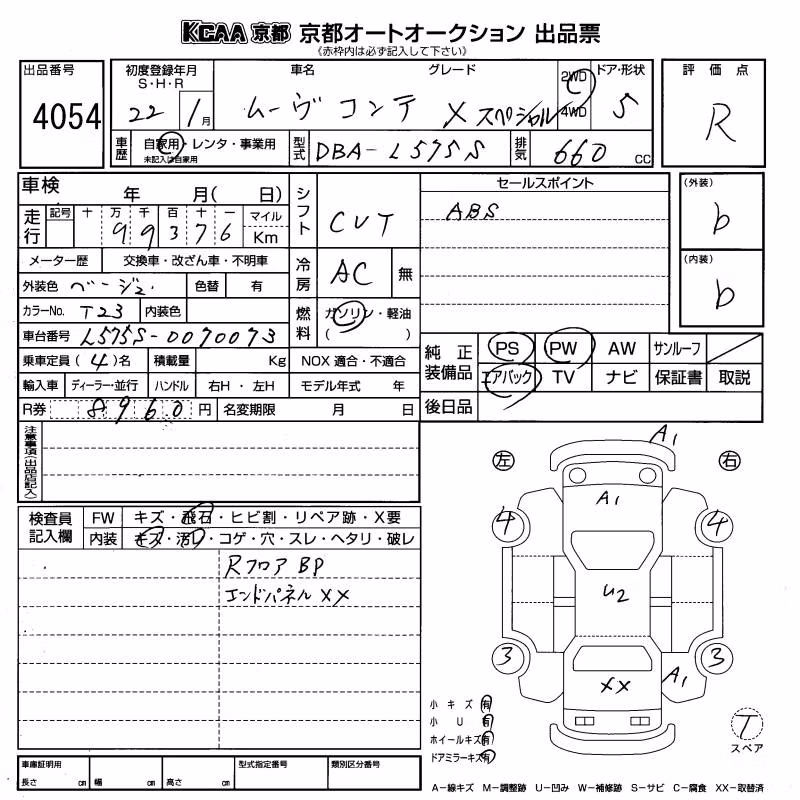 KCAA 京都 京都オートオークション 出品票
《赤枠内は必ず記入して下さい》
出品番号
4054
初度登録年月 車名 グレード 2WD ドア・形状
S・H・R
22 1月 ムーヴ コンテ X スペシャル 4WD 5
車歴 自家用・レンタ・事業用
未記入は自家用
型式 DBA-L575S 排気 660 CC
評価点
R
車検 年 月( 日)
走行 記号 十 万 千 百 十 一 マイル
99376 Km
メーター歴 交換車・改ざん車・不明車
外装色 ベージュ 色替 有
カラーNo. T23 内装色
車台番号 L575S-0070073
乗車定員 (4)名 積載量 Kg
輸入車 ディーラー・並行 ハンドル 右H・左H
R券 8960 円 名変期限 月 日
シフト CVT
冷房 AC 無
燃料 ガソリン・軽油
( )
NOX 適合・不適合
モデル年式 年
セールスポイント
ABS
(外装)
b
(内装)
b
純正装備品 PS PW AW サンルーフ
エアバック TV ナビ 保証書 取説
後日品
注意事項(出品店記入)
検査員記入欄 FW キズ・飛石・ヒビ割・リペア跡・X要
内装 キズ・汚れ・コゲ・穴・スレ・ヘタリ・破レ
Rフロア BP
エンドパネル XX
左 A1 右
A1
4 4
U2
3 3
XX A1
小キズ 有
小 U 有
ホイールキズ 有
ドアミラーキズ 有
T
スペア
車庫証明用 型式指定番号 類別区分番号
長さ cm 幅 cm 高さ cm
A－線キズ M－調整跡 U－凹み W－補修跡 S－サビ C－腐食 XX－取替済